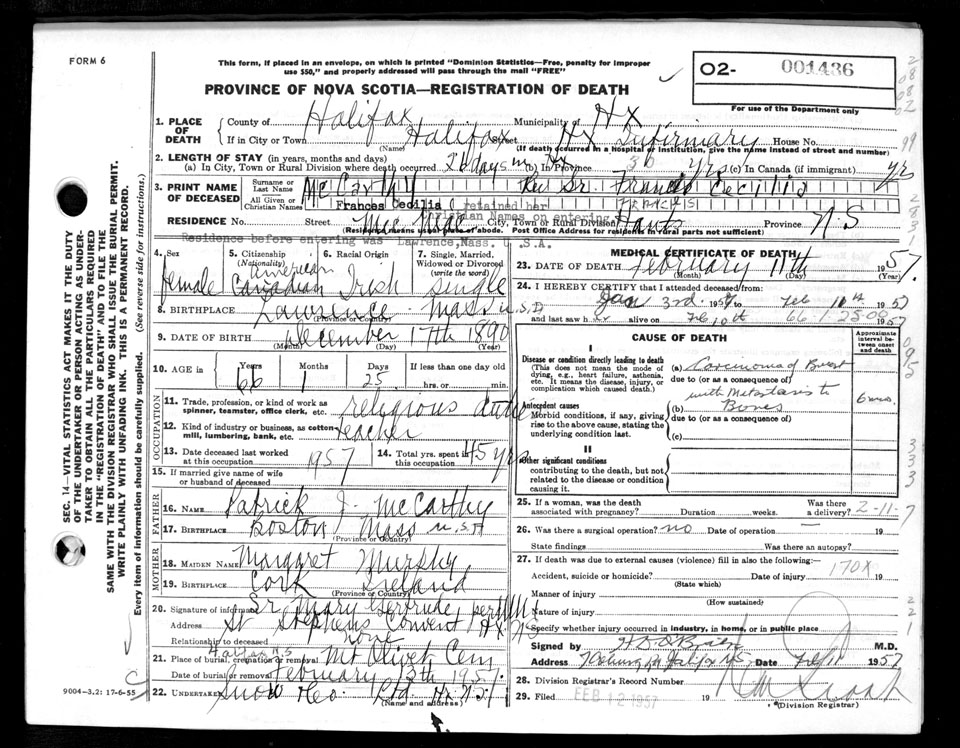 FORM 6
This form, if placed in an envelope, on which is printed "Dominion Statistics—Free, penalty for improper
use $50," and properly addressed will pass through the mail "FREE"
02- 001436
For use of the Department only
PROVINCE OF NOVA SCOTIA—REGISTRATION OF DEATH
1. PLACE OF DEATH
County of Halifax Municipality of Hx
If in City or Town Halifax Street Hx Infirmary House No.
(Name) (If death occurred in a hospital or institution, give the name instead of street and number)
2. LENGTH OF STAY (in years, months and days)
(a) In City, Town or Rural Division where death occurred days in Hx (b) In Province 36 yrs (c) In Canada (if immigrant) yrs
3. PRINT NAME OF DECEASED
Surname or Last Name McCarthy Rev Sr. Francis Cecilia
All Given or Christian Names Frances Cecilia retained her FRANCIS
Christian Names on entering
RESIDENCE No. Street City, Town or Rural Division Hants Province N.S
(Residence means usual place of abode. Post Office Address for residents in rural parts not sufficient)
Residence before entering was Lawrence, Mass. U.S.A.
4. Sex
female
5. Citizenship (Nationality)
American
Canadian
6. Racial Origin
Irish
7. Single, Married, Widowed or Divorced (write the word)
single
8. BIRTHPLACE Lawrence Mass U.S.A
(Province or Country)
9. DATE OF BIRTH December 17th 1890
(Month) (Day) (Year)
10. AGE in Years 66 Months 1 Days 25 If less than one day old
hrs. or min.
OCCUPATION
11. Trade, profession, or kind of work as
spinner, teamster, office clerk, etc. religious
12. Kind of industry or business, as cotton
mill, lumbering, bank, etc. teacher
13. Date deceased last worked
at this occupation 1957
14. Total yrs. spent in
this occupation 45 yrs
15. If married give name of wife
or husband of deceased
FATHER
16. NAME Patrick J. McCarthy
17. BIRTHPLACE Boston Mass U.S.A
(Province or Country)
MOTHER
18. MAIDEN NAME Margaret Murphy
19. BIRTHPLACE Cork Ireland
(Province or Country)
20. Signature of informant Sr Mary Gertrude per
Address St Stephens Convent Hx NS
Relationship to deceased none
Halifax N.S
21. Place of burial, cremation or removal Mt Olivet Cem
Date of burial or removal February 13th 1957
22. UNDERTAKER Snow & Co. Ltd. Hx N.S.
(Name and address)
9004-3.2: 17-6-55
MEDICAL CERTIFICATE OF DEATH
23. DATE OF DEATH February 11th 1957
(Month) (Day) (Year)
24. I HEREBY CERTIFY that I attended deceased from:
Jan 3rd 1957 to Feb 11th 1957
and last saw her alive on Feb 10th 1957
CAUSE OF DEATH
Approximate interval between onset and death
I
Disease or condition directly leading to death
(This does not mean the mode of
dying, e.g., heart failure, asthenia,
etc. It means the disease, injury, or
complication which caused death.)
(a) Carcinoma of Breast
due to (or as a consequence of)
with Metastasis to
6 mo.
Antecedent causes
Morbid conditions, if any, giving
rise to the above cause, stating the
underlying condition last.
(b) Bones
due to (or as a consequence of)
(c)
II
Other significant conditions
contributing to the death, but not
related to the disease or condition
causing it.
25. If a woman, was the death
associated with pregnancy? Duration weeks. Was there a delivery? 2-11-7
26. Was there a surgical operation? no Date of operation — 19
State findings Was there an autopsy?
27. If death was due to external causes (violence) fill in also the following:—
Accident, suicide or homicide? Date of injury 170X 19
(State which)
Manner of injury
(How sustained)
Nature of injury
Specify whether injury occurred in industry, in home, or in public place
Signed by H D O'Brien M.D.
Address Halifax NS Date Feb 11 1957
28. Division Registrar's Record Number
29. Filed FEB 12 1957 19
(Division Registrar)
SEC. 14—VITAL STATISTICS ACT MAKES IT THE DUTY
OF THE UNDERTAKER OR PERSON ACTING AS UNDER-
TAKER TO OBTAIN ALL THE PARTICULARS REQUIRED
IN THE "REGISTRATION OF DEATH" AND TO FILE THE
SAME WITH THE DIVISION REGISTRAR WHO SHALL ISSUE THE BURIAL PERMIT.
WRITE PLAINLY WITH UNFADING INK. THIS IS A PERMANENT RECORD.
Every item of information should be carefully supplied. (See reverse side for instructions.)